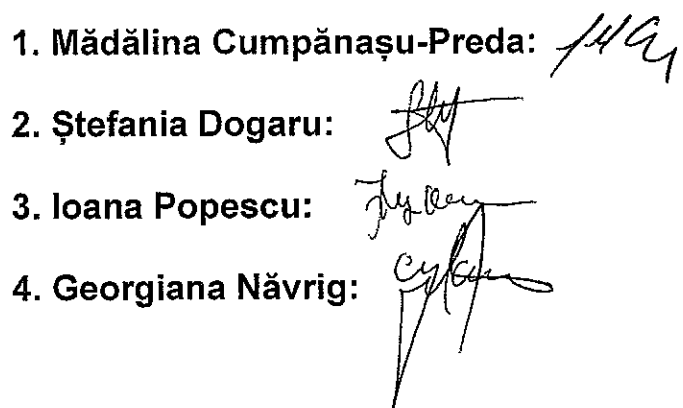 1. Mădălina Cumpănașu-Preda:
2. Ștefania Dogaru:
3. Ioana Popescu:
4. Georgiana Năvrig: